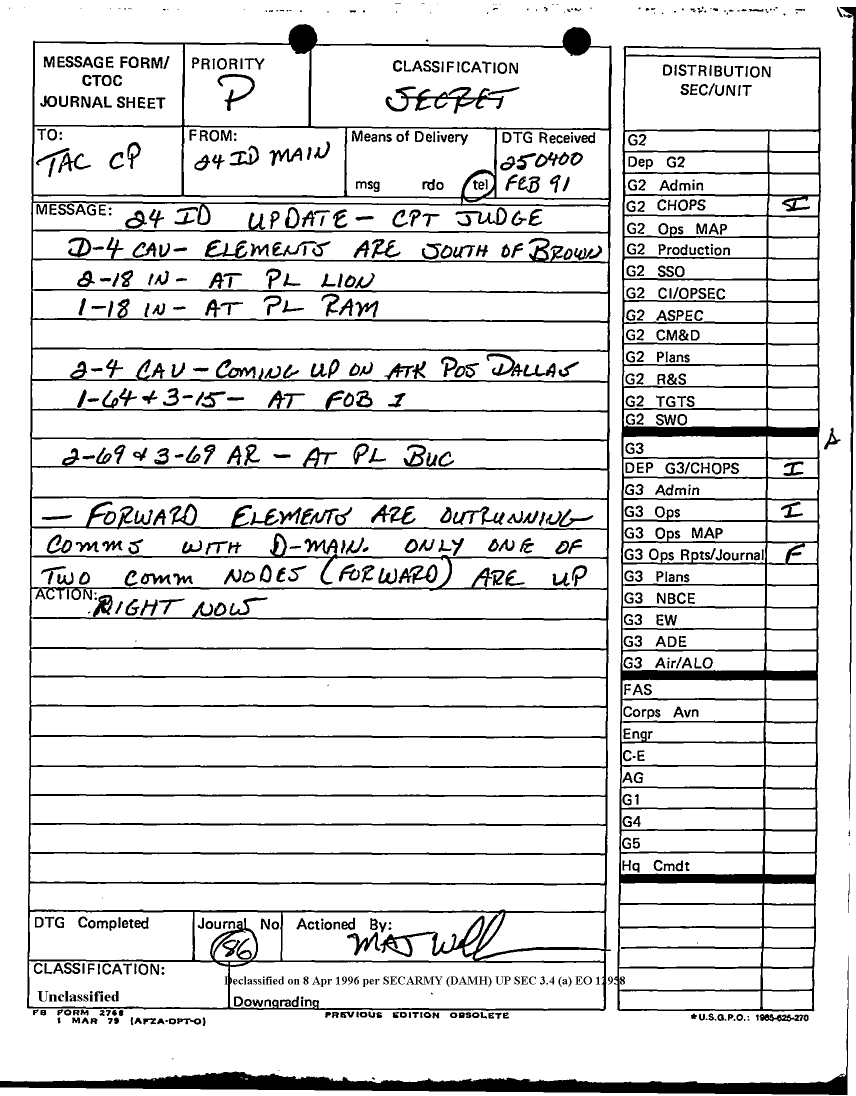 MESSAGE FORM/ CTOC JOURNAL SHEET
PRIORITY
P
CLASSIFICATION
SECRET
TO:
TAC CP
FROM:
24 ID MAIN
Means of Delivery
msg rdo tel
DTG Received
250400
FEB 91
MESSAGE: 24 ID UPDATE - CPT JUDGE
D-4 CAV - ELEMENTS ARE SOUTH OF BROWN
2-18 IN - AT PL LION
1-18 IN - AT PL RAM
2-4 CAV - COMING UP ON ATK POS DALLAS
1-64 & 3-15 - AT FOB I
2-69 & 3-69 AR - AT PL BUC
- FORWARD ELEMENTS ARE OUTRUNNING
COMMS WITH D-MAIN. ONLY ONE OF
TWO COMM NODES (FORWARD) ARE UP
ACTION: RIGHT NOW
DTG Completed
Journal No.
86
Actioned By:
MAJ
CLASSIFICATION:
Unclassified
Declassified on 8 Apr 1996 per SECARMY (DAMH) UP SEC 3.4 (a) EO 12958
Downgrading
FB FORM 2768
1 MAR 79 (AFZA-DPT-O)
PREVIOUS EDITION OBSOLETE
DISTRIBUTION
SEC/UNIT
G2
Dep G2
G2 Admin
G2 CHOPS I
G2 Ops MAP
G2 Production
G2 SSO
G2 CI/OPSEC
G2 ASPEC
G2 CM&D
G2 Plans
G2 R&S
G2 TGTS
G2 SWO
G3
DEP G3/CHOPS I
G3 Admin
G3 Ops I
G3 Ops MAP
G3 Ops Rpts/Journal F
G3 Plans
G3 NBCE
G3 EW
G3 ADE
G3 Air/ALO
FAS
Corps Avn
Engr
C-E
AG
G1
G4
G5
Hq Cmdt
*U.S.G.P.O.: 1985-625-270